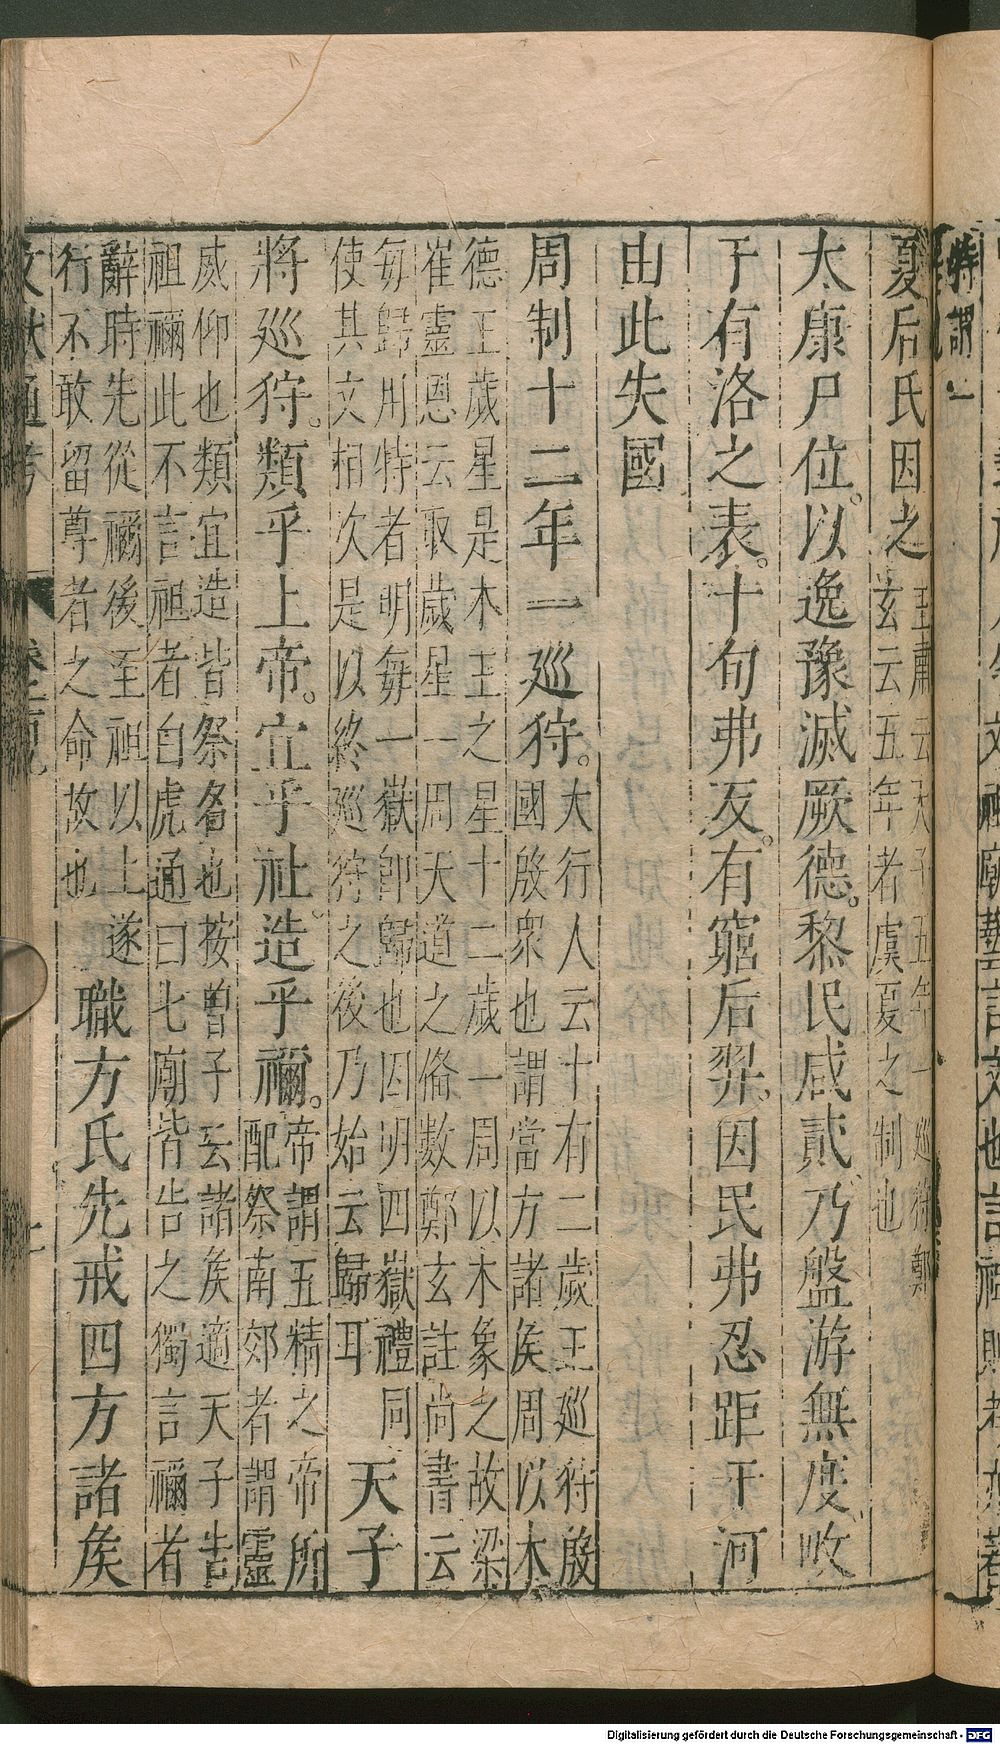 夏后氏因之
王肅云天子五年一巡狩鄭
玄云五年者虞夏之制也
太康尸位。以逸豫滅厥德。黎民咸貳、乃盤游無度、畋
于有洛之表。十旬弗反。有窮后羿。因民弗忍距于河
由此失國
周制十二年一巡狩。
大行人云十有二歲王巡狩殷
國殷衆也謂當方諸侯周以木
德王歲星是木王之星十二歲一周以木象之故梁
崔靈恩云取歲星一周天道之備數鄭玄註尚書云
每歸用特者明每一嶽卽歸也因明四嶽禮同
使其文相次是以終巡狩之後乃始云歸耳
天子
將巡狩。類乎上帝。宜乎社。造乎禰。
帝謂五精之帝所
配祭南郊者謂靈
威仰也類宜造皆祭名也按曾子云諸侯適天子告
祖禰此不言祖者白虎通曰七廟皆告之獨言禰者
辭時先從禰後至祖以上遂
行不敢留尊者之命故也
職方氏先戒四方諸侯
文獻通考
Digitalisierung gefördert durch die Deutsche Forschungsgemeinschaft - DFG